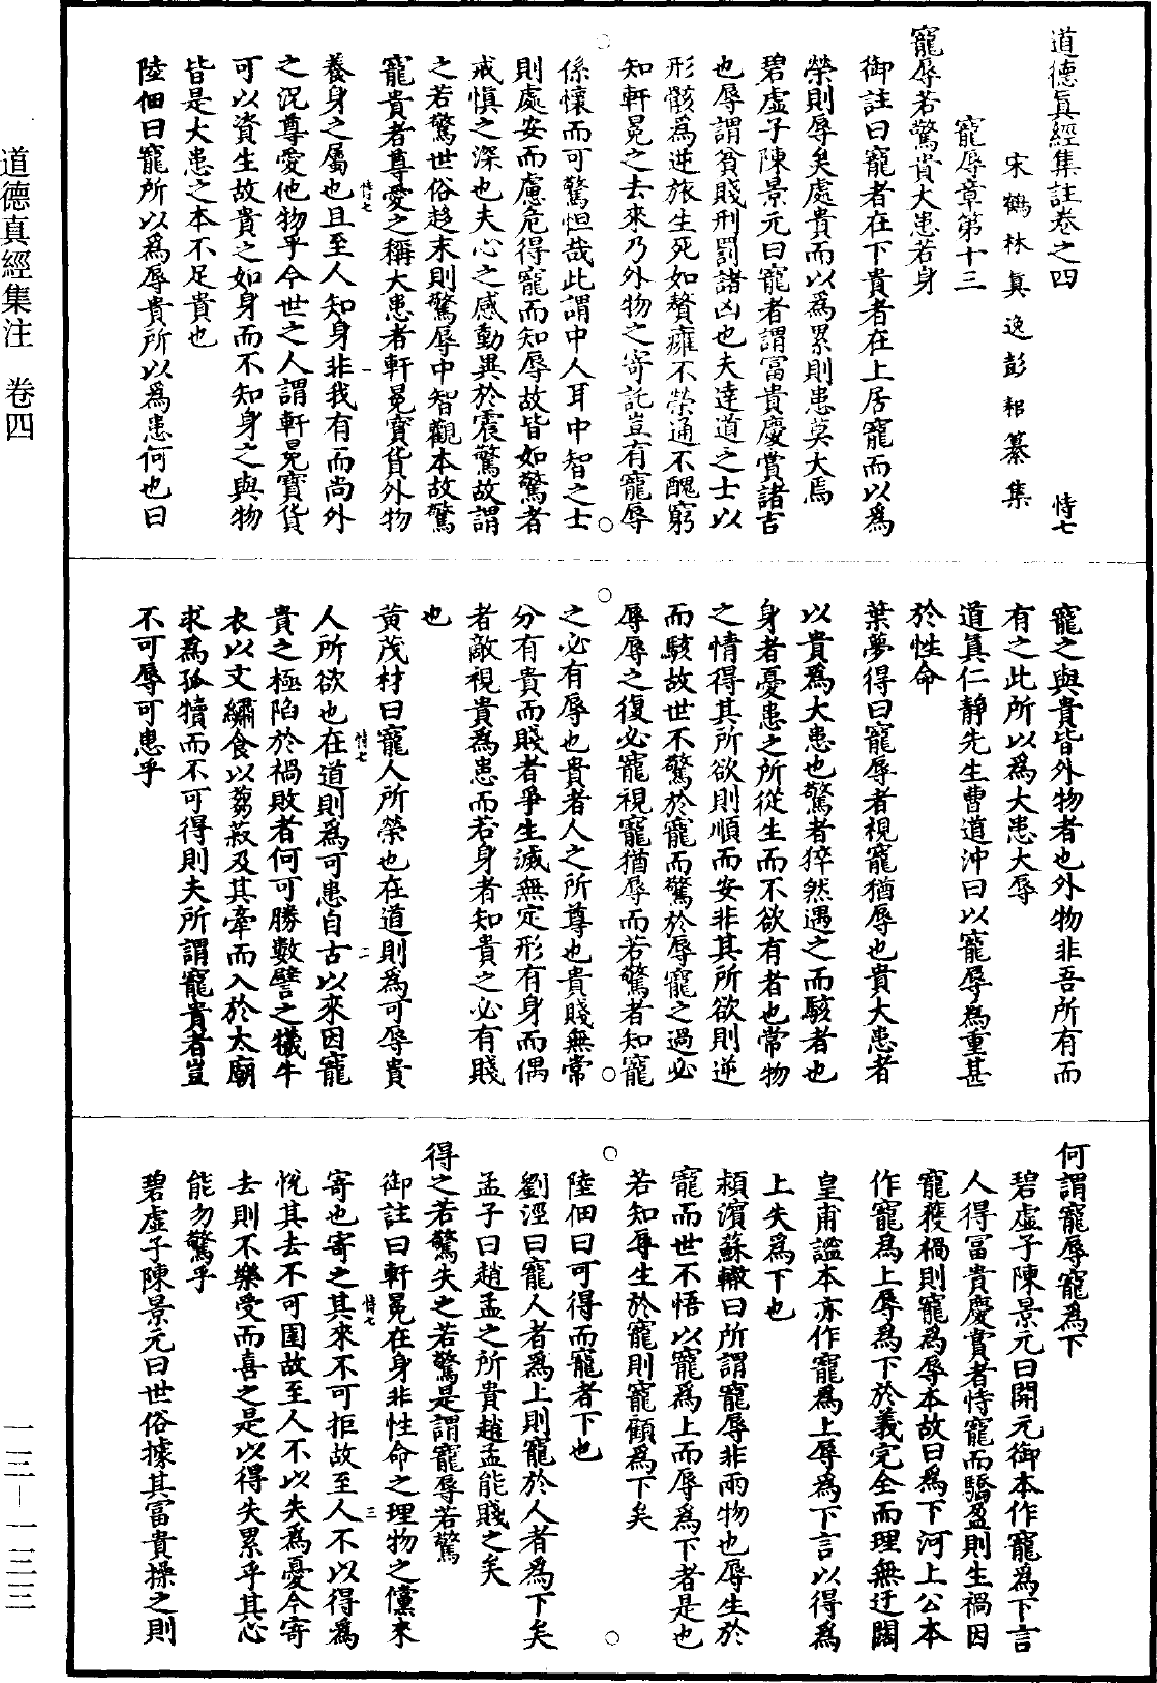 道德真經集註卷之四 恃七
宋鶴林真逸彭耜纂集
寵辱章第十三
寵辱若驚貴大患若身
御註曰寵者在下貴者在上居寵而以為
榮則辱矣處貴而以為累則患莫大焉
碧虛子陳景元曰寵者謂富貴慶賞諸吉
也辱謂貧賤刑罰諸凶也夫達道之士以
形骸為逆旅生死如贅癰不榮通不醜窮
知軒冕之去來乃外物之寄託豈有寵辱
係懷而可驚怛哉此謂中人耳中智之士
則處安而慮危得寵而知辱故皆如驚者
戒慎之深也夫心之感動異於震驚故謂
之若驚世俗趍末則驚辱中智觀本故驚
寵貴者尊愛之稱大患者軒冕寶貨外物
恃七 一
養身之屬也且至人知身非我有而尚外
之況尊愛他物乎今世之人謂軒冕寶貨
可以資生故貴之如身而不知身之與物
皆是大患之本不足貴也
陸佃曰寵所以為辱貴所以為患何也曰
寵之與貴皆外物者也外物非吾所有而
有之此所以為大患大辱
道真仁靜先生曹道沖曰以寵辱為重甚
於性命
葉夢得曰寵辱者視寵猶辱也貴大患者
以貴為大患也驚者猝然遇之而駭者也
身者憂患之所從生而不欲有者也常物
之情得其所欲則順而安非其所欲則逆
而駭故世不驚於寵而驚於辱寵之過必
辱辱之復必寵視寵猶辱而若驚者知寵
之必有辱也貴者人之所尊也貴賤無常
分有貴而賤者爭生滅無定形有身而偶
者敵視貴為患而若身者知貴之必有賤
也
黃茂材曰寵人所榮也在道則為可辱貴
恃七 二
人所欲也在道則為可患自古以來因寵
貴之極陷於禍敗者何可勝數譬之犧牛
衣以文繡食以芻菽及其牽而入於太廟
求為孤犢而不可得則夫所謂寵貴者豈
不可辱可患乎
何謂寵辱寵為下
碧虛子陳景元曰開元御本作寵為下言
人得富貴慶賞者恃寵而驕盈則生禍因
寵穫禍則寵為辱本故曰為下河上公本
作寵為上辱為下於義完全而理無迂闊
皇甫謐本亦作寵為上辱為下言以得為
上失為下也
頴濱蘇轍曰所謂寵辱非兩物也辱生於
寵而世不悟以寵為上而辱為下者是也
若知辱生於寵則寵顧為下矣
陸佃曰可得而寵者下也
劉涇曰寵人者為上則寵於人者為下矣
孟子曰趙孟之所貴趙孟能賤之矣
得之若驚失之若驚是謂寵辱若驚
御註曰軒冕在身非性命之理物之儻來
恃七 三
寄也寄之其來不可拒故至人不以得為
悅其去不可圉故至人不以失為憂今寄
去則不樂受而喜之是以得失累乎其心
能勿驚乎
碧虛子陳景元曰世俗據其富貴操之則
道德真經集注 卷四
一三—一三三